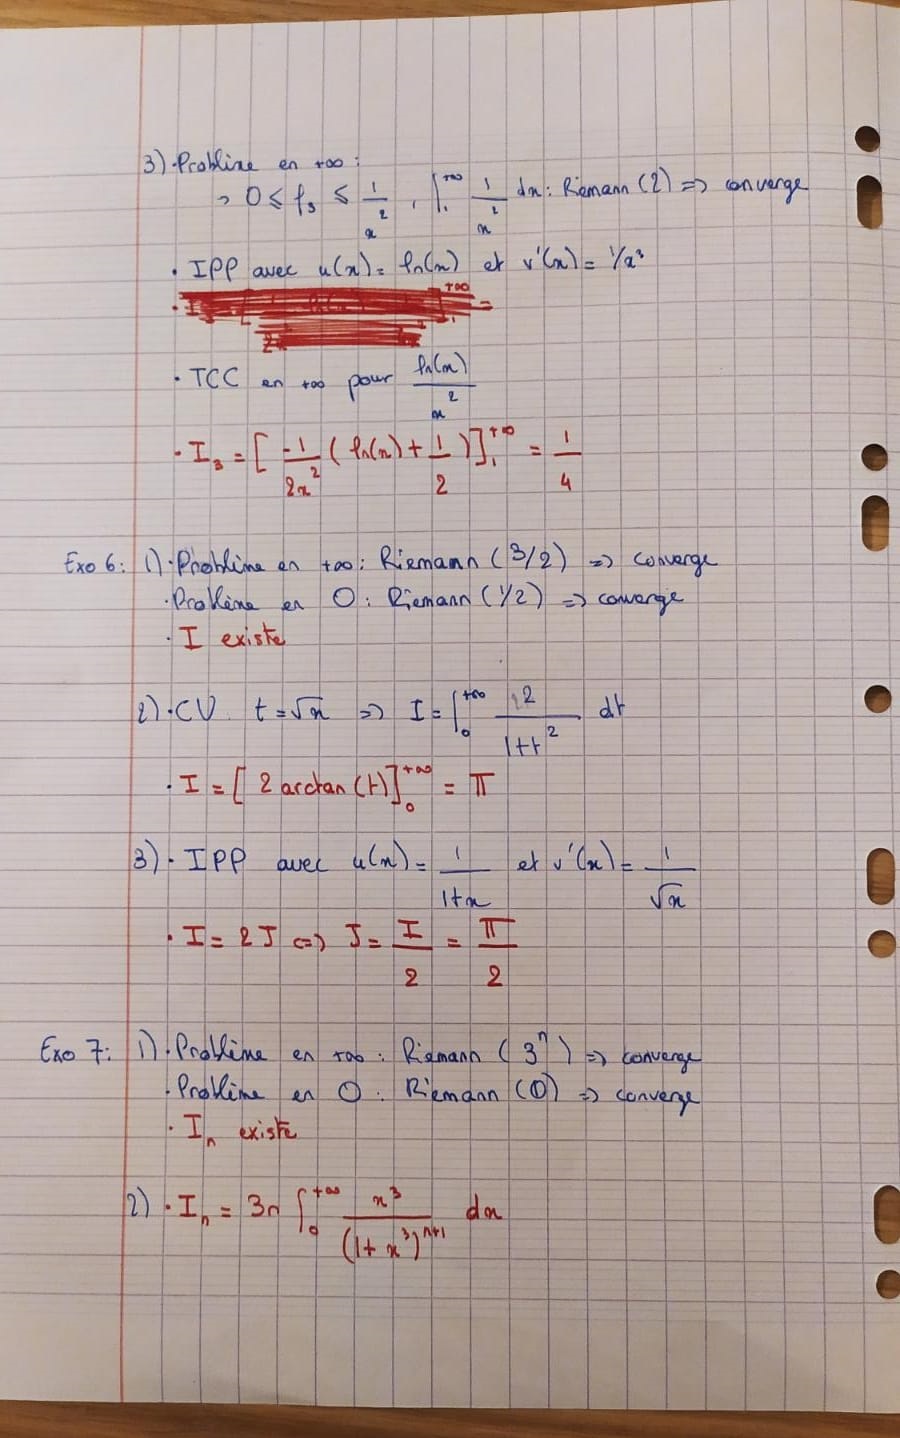 3) · Problème en +∞ :
→ 0 ≤ f₃ ≤ 1/x² , ∫₁^+∞ 1/x² dx : Riemann (2) => converge
· IPP avec u(x) = ln(x) et v'(x) = 1/x³
· TCC en +∞ pour ln(x)/x²
· I₃ = [ -1/2x² ( ln(x) + 1/2 ) ]₁^+∞ = 1/4
Exo 6 : 1) · Problème en +∞ : Riemann (3/2) => converge
· Problème en 0 : Riemann (1/2) => converge
· I existe
2) · CV t = √x => I = ∫₀^+∞ 2/1+t² dt
· I = [ 2 arctan (t) ]₀^+∞ = π
3) · IPP avec u(x) = 1/1+x et v'(x) = 1/√x
· I = 2J <=> J = I/2 = π/2
Exo 7 : 1) · Problème en +∞ : Riemann (3ⁿ) => converge
· Problème en 0 : Riemann (0) => converge
· Iₙ existe
2) · Iₙ = 3n ∫₀^+∞ x³/(1+x³)ⁿ⁺¹ dx